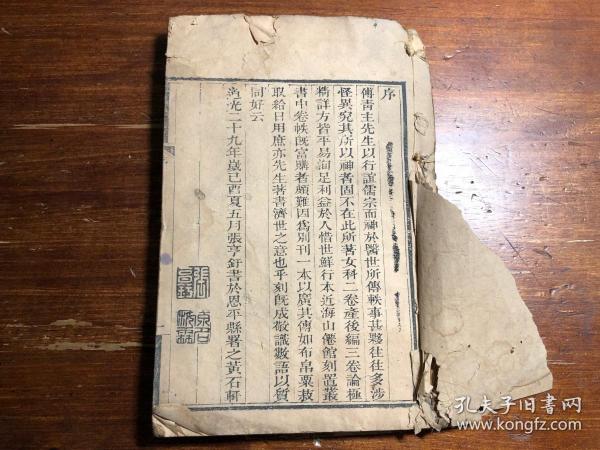 序
傅青主先生以行誼儒宗而神於醫世所傳軼事甚夥往往多涉
怪異究其所以神者固不在此所著女科二卷產後編三卷論極
精詳方皆平易洵足利益於人惜世鮮行本近海山僊館刻置叢
書中卷帙既富購者頗難因為別刊一本以廣其傳如布帛粟菽
取給日用庶亦先生著書濟世之意也乎刻既成敬識數語以質
同好云
道光二十九年歲己酉夏五月張亨釬書於恩平縣署之黃石軒
孔夫子旧书网
www.kongfz.com